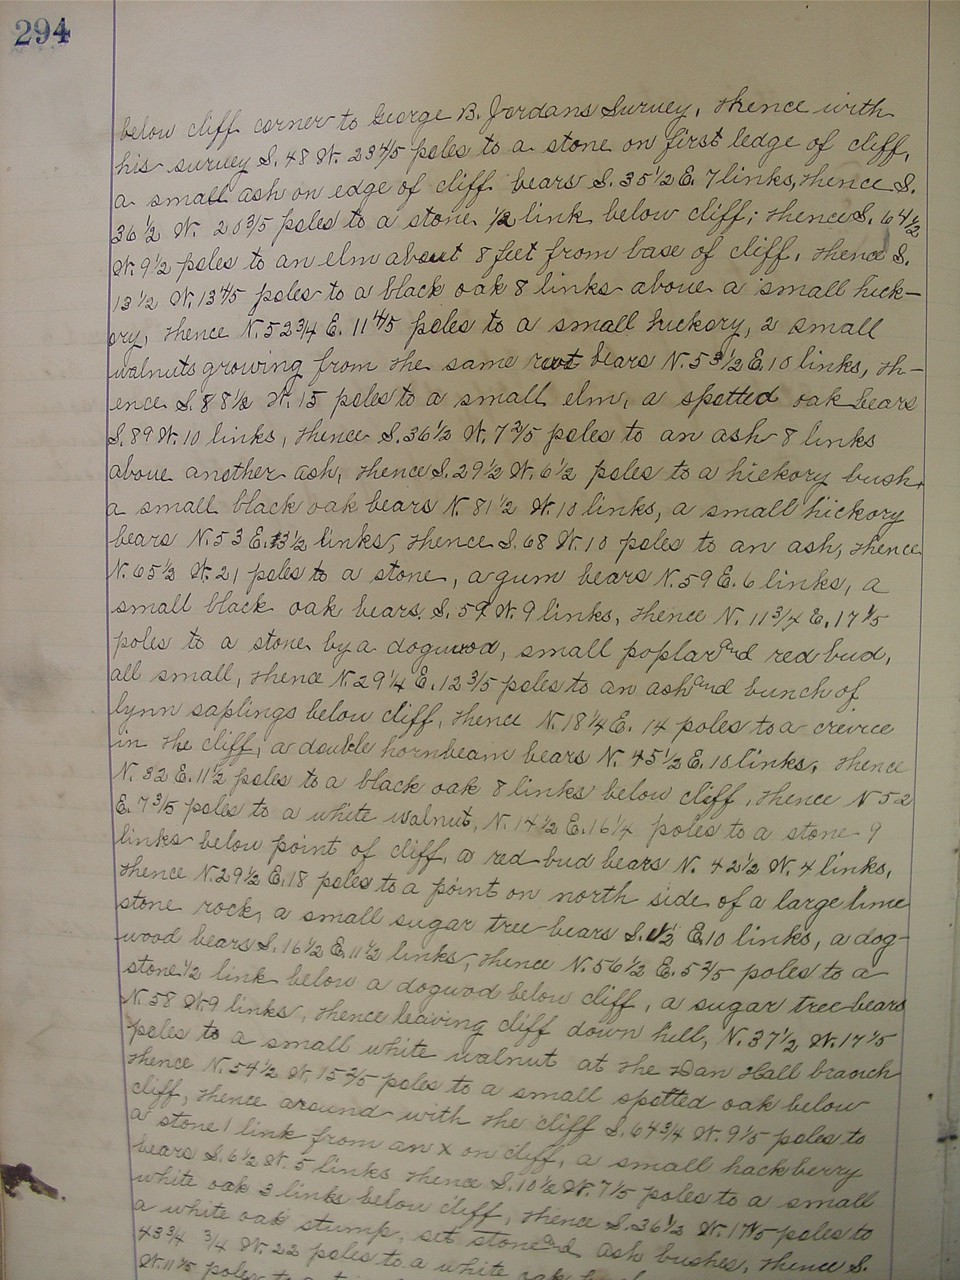 294
below cliff corner to George B. Jordans Survey, thence with
his survey S. 48 W. 23 4/5 poles to a stone on first ledge of cliff,
a small ash on edge of cliff bears S. 35 1/2 E. 7 links, thence S.
36 1/2 W. 20 3/5 poles to a stone 1/2 link below cliff; thence S. 64 1/2
W. 9 1/2 poles to an elm about 8 feet from base of cliff, thence S.
13 1/2 W. 13 4/5 poles to a black oak 8 links above a small hick-
ory, thence N. 52 3/4 E. 11 4/5 poles to a small hickory, 2 small
walnuts growing from the same root bears N. 53 1/2 E. 10 links, th-
ence S. 88 1/2 W. 15 poles to a small elm, a spotted oak bears
S. 89 W. 10 links, thence S. 36 1/2 W. 7 2/5 poles to an ash 8 links
above another ash, thence S. 29 1/2 W. 6 1/2 poles to a hickory bush,
a small black oak bears N. 81 1/2 W. 10 links, a small hickory
bears N. 53 E. 3 1/2 links, thence S. 68 W. 10 poles to an ash, thence
N. 65 1/2 W. 21 poles to a stone, a gum bears N. 59 E. 6 links, a
small black oak bears S. 59 W. 9 links, thence N. 11 3/4 E. 17 1/5
poles to a stone by a dogwood, small poplar and red bud,
all small, thence N. 29 1/4 E. 12 3/5 poles to an ash and bunch of
lynn saplings below cliff, thence N. 18 1/4 E. 14 poles to a crevice
in the cliff, a double hornbeam bears N. 45 1/2 E. 10 links, thence
N. 32 E. 11 1/2 poles to a black oak 8 links below cliff, thence N 52
E. 7 3/5 poles to a white walnut, N. 14 1/2 E. 16 1/4 poles to a stone 9
links below point of cliff, a red bud bears N. 42 1/2 W. 4 links,
thence N. 29 1/2 E. 18 poles to a point on north side of a large lime
stone rock, a small sugar tree bears S. 1/2 E. 10 links, a dog-
wood bears S. 16 1/2 E. 11 1/2 links, thence N. 56 1/2 E. 5 2/5 poles to a
stone 1/2 link below a dogwood below cliff, a sugar tree bears
N. 58 W. 9 links, thence leaving cliff down hill, N. 37 1/2 W. 17 1/5
poles to a small white walnut at the Dan Hall branch
thence N. 54 1/2 W. 15 2/5 poles to a small spotted oak below
cliff, thence around with the cliff S. 64 3/4 W. 9 1/5 poles to
a stone 1 link from an x on cliff, a small hackberry
bears S. 6 1/2 W. 5 links thence S. 10 1/2 W. 7 1/5 poles to a small
white oak 3 links below cliff, thence S. 36 1/2 W. 17 1/5 poles to
a white oak stump, set stone and ash bushes, thence S.
43 3/4 3/4 W. 22 poles to a white oak
W. 11 1/5 poles to a